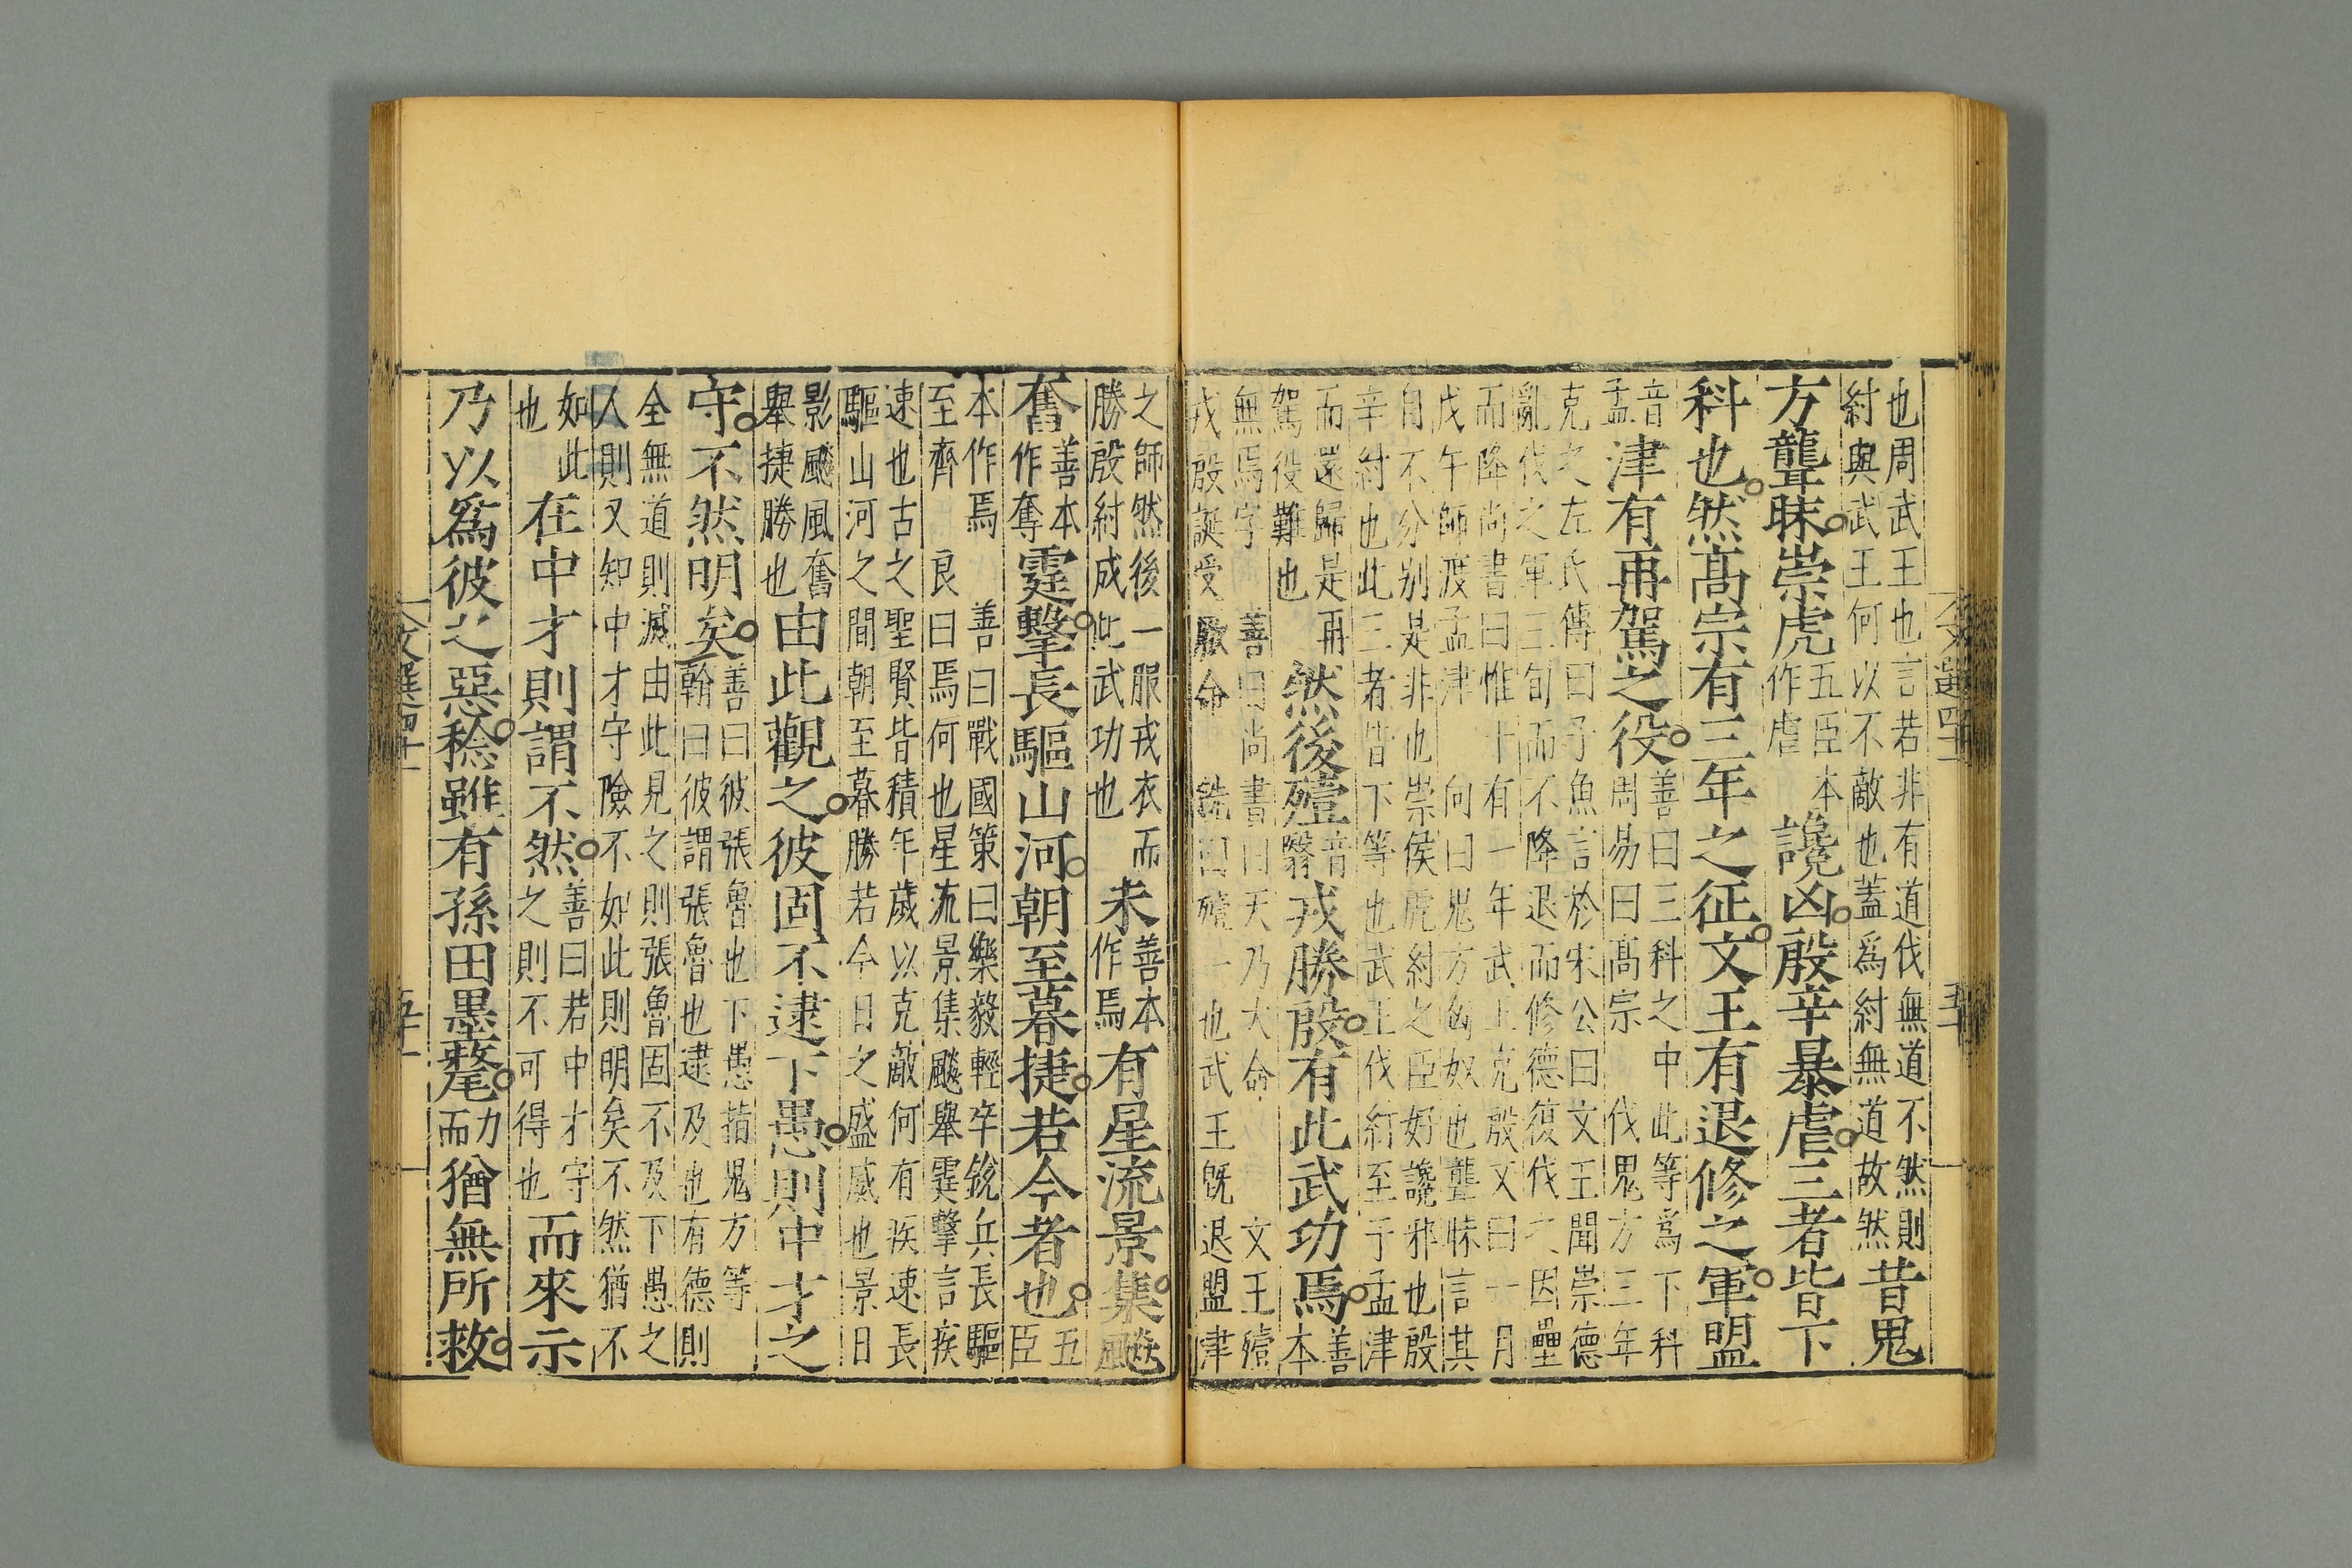 也周武王也言若非有道伐無道不然則
紂與武王何以不敵也蓋爲紂無道故然
昔鬼
方聾昧崇虎
五臣本
作虐
讒凶殷辛暴虐三者皆下
科也然髙宗有三年之征文王有退修之軍盟
音
孟
津有再駕之役
善曰三科之中此等爲下科
周易曰髙宗伐鬼方三年
克之左氏傳曰子魚言於宋公曰文王聞崇德
亂伐之軍三旬而不降退而修德復伐之因壘
而降尚書曰惟十有一年武王克殷又曰一月
戊午師渡孟津 向曰鬼方匈奴也聾昧言其
自不分別是非也崇侯虎紂之臣好讒邪也殷
辛紂也此三者皆下等也武王伐紂至于孟津
而還歸是再
駕役難也
然後殪
音
翳
戎勝殷有此武功焉
善本
無焉字
善曰尚書曰天乃大命文王殪
戎殷誕受厥命 銑曰殪一也武王旣退盟津
之師然後一服戎衣而
勝殷紂成此武功也
未
善本
作焉
有星流景集飈
奮
善本
作奪
霆擊長驅山河朝至暮捷若今者也
五臣
本作焉
至齊
善曰戰國策曰樂毅輕卒銳兵長驅
良曰焉何也星流景集飈舉霆擊言疾
速也古之聖賢皆積年歲以克敵何有疾速長
驅山河之間朝至暮勝若今日之盛威也景日
影飈風奮
舉捷勝也
由此觀之彼固不逮下愚則中才之
守不然明矣
善曰彼張魯也下愚指鬼方等
翰曰彼謂張魯也逮及也有德則
全無道則滅由此見之則張魯固不及下愚之
人則又知中才守險不如此則明矣不然猶不
如此
也
在中才則謂不然
善曰若中才守
之則不可得也
而來示
乃以爲彼之惡稔雖有孫田墨氂
力
而
猶無所救